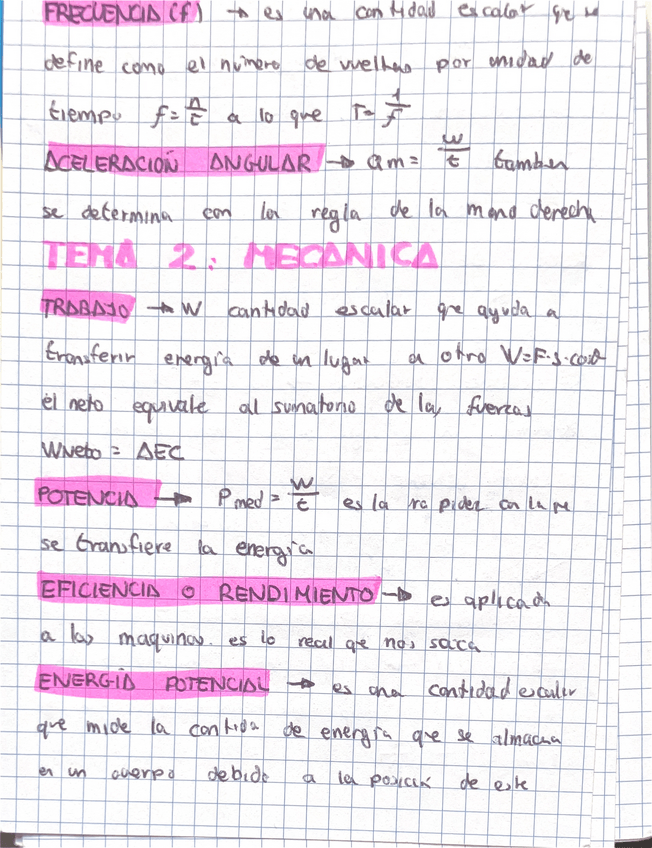 FRECUENCIA (f) → es una cantidad escalar que se
define como el número de vueltas por unidad de
tiempo f = n/t a lo que T = 1/f
ACELERACIÓN ANGULAR → am = w/t tambien
se determina con la regla de la mano derecha
TEMA 2: MECANICA
TRABAJO → W cantidad escalar que ayuda a
transferir energía de un lugar a otro W=F·s·cosθ
el neto equivale al sumatorio de las fuerzas
Wneto = ΔEC
POTENCIA → Pmed = W/t es la rapidez con la que
se transfiere la energía
EFICIENCIA O RENDIMIENTO → es aplicada
a las maquinas. es lo real que nos saca
ENERGÍA POTENCIAL → es una cantidad escalar
que mide la cantida de energía que se almacena
en un cuerpo debido a la posición de este